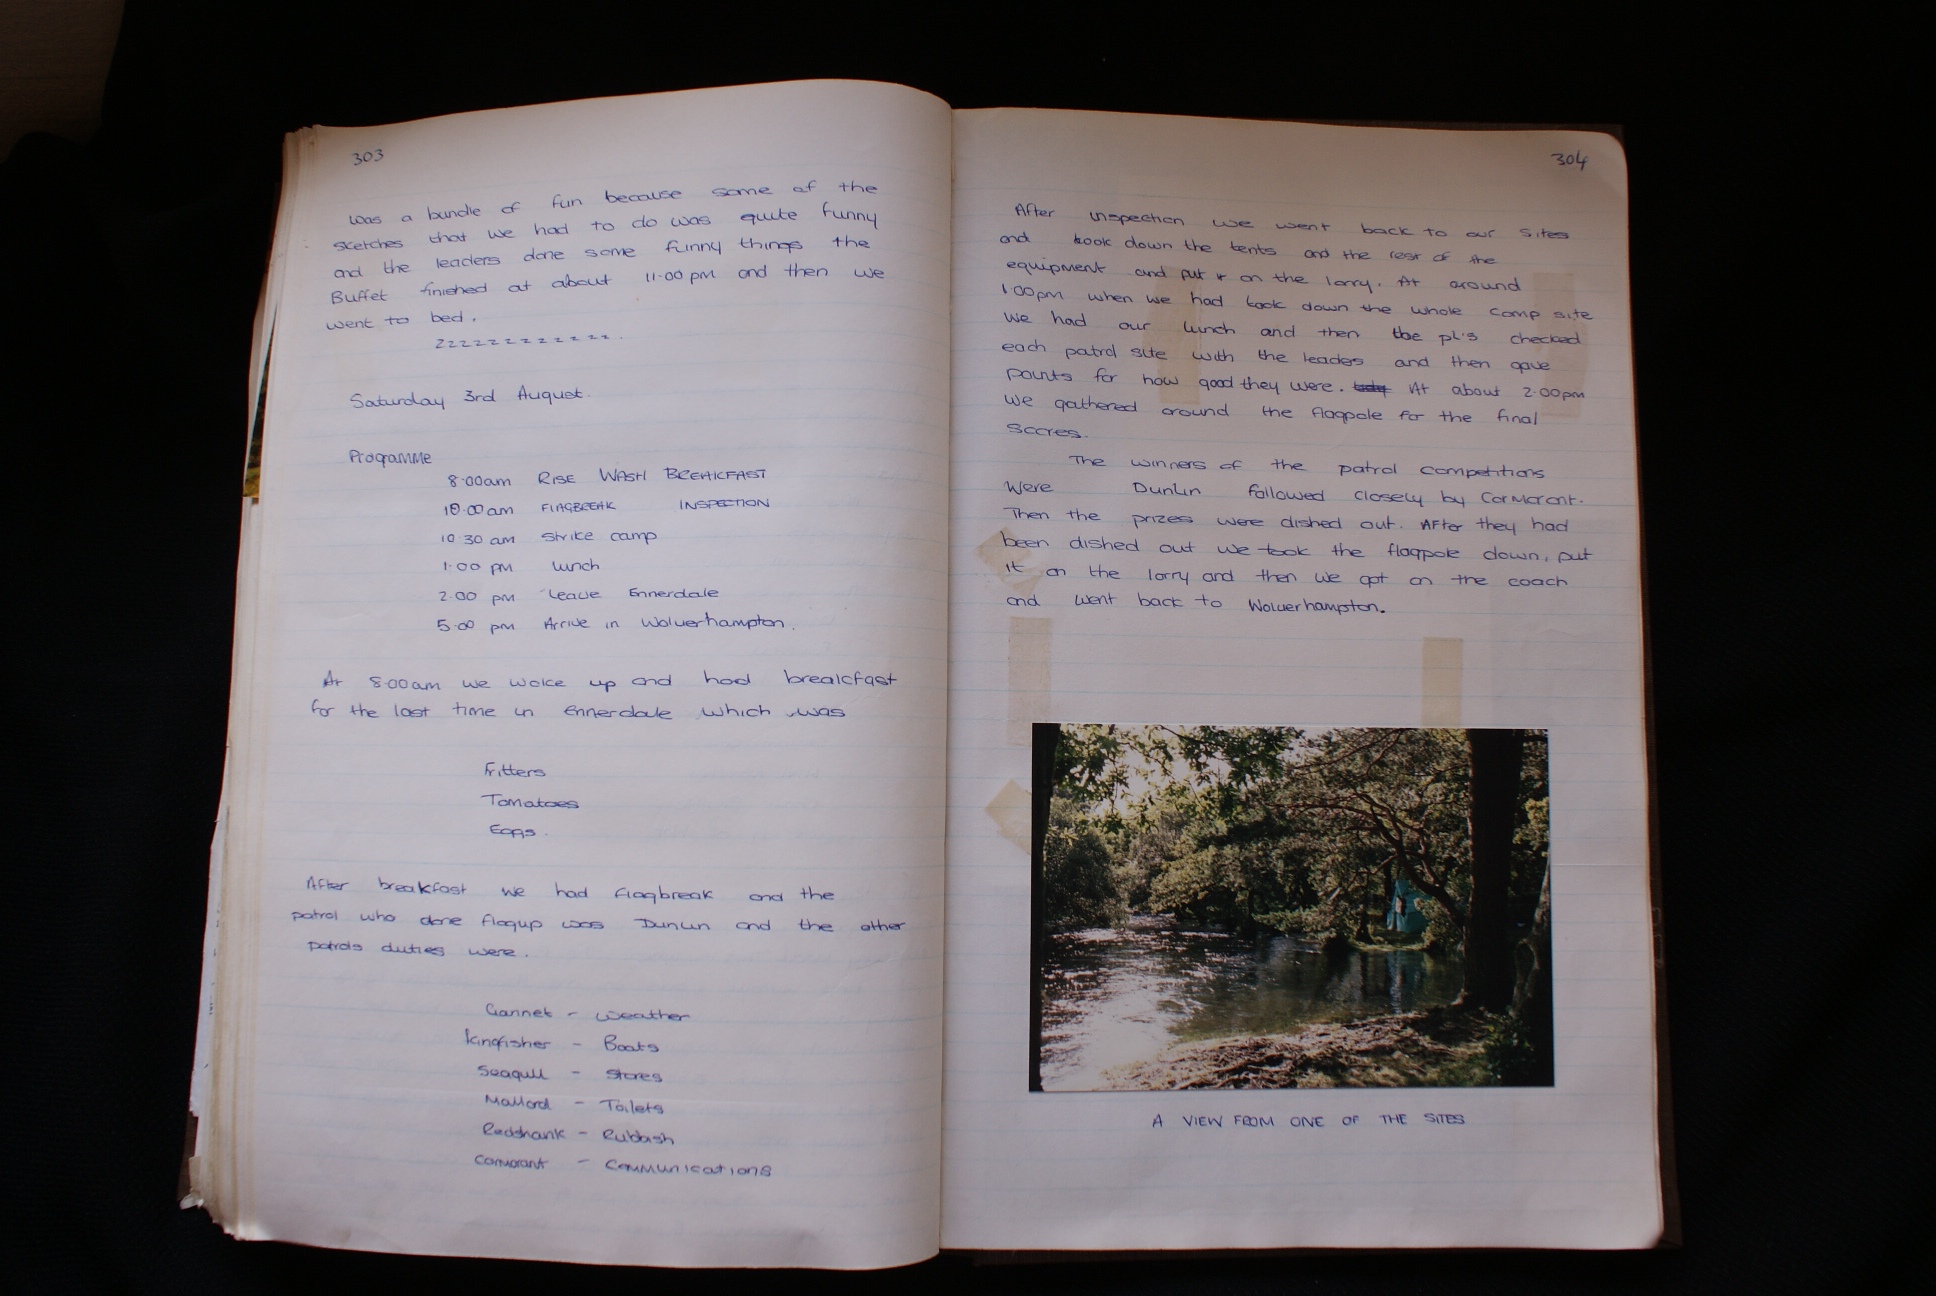 303
was a bundle of fun because some of the
sketches that we had to do was quite funny
and the leaders done some funny things the
Buffet finished at about 11.00 pm and then we
went to bed.
zzzzzzzzzzzz.
Saturday 3rd August.
Programme
8.00am RISE WASH BREAKFAST
10.00am FLAGBREAK INSPECTION
10.30 am Strike camp
1.00 pm lunch
2.00 pm Leave Ennerdale
5.00 pm Arrive in Wolverhampton.
At 8.00am we woke up and had breakfast
for the last time in Ennerdale which was
Fritters
Tomatoes
Eggs.
After breakfast we had flagbreak and the
patrol who done flagup was Dunlin and the other
patrols duties were.
Gannet - weather
kingfisher - Boats
Seagull - Stores
Mallard - Toilets
Redshank - Rubbish
Cormorant - Communications
304
After inspection we went back to our sites
and took down the tents and the rest of the
equipment and put it on the lorry. At around
1.00pm when we had took down the whole camp site
we had our lunch and then the pl's checked
each patrol site with the leaders and then gave
points for how good they were. At about 2.00pm
we gathered around the flagpole for the final
scores.
The winners of the patrol competitions
were Dunlin followed closely by Cormorant.
Then the prizes were dished out. After they had
been dished out we took the flagpole down, put
it on the lorry and then we got on the coach
and went back to Wolverhampton.
A VIEW FROM ONE OF THE SITES